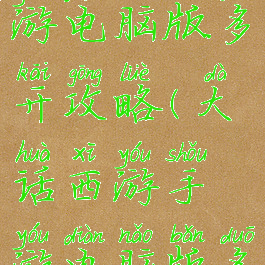 游电脑版多
kāi gōng lüè dà
开攻略(大
huà xī yóu shǒu
话西游手
yóu diàn nǎo bǎn duō
游电脑版多